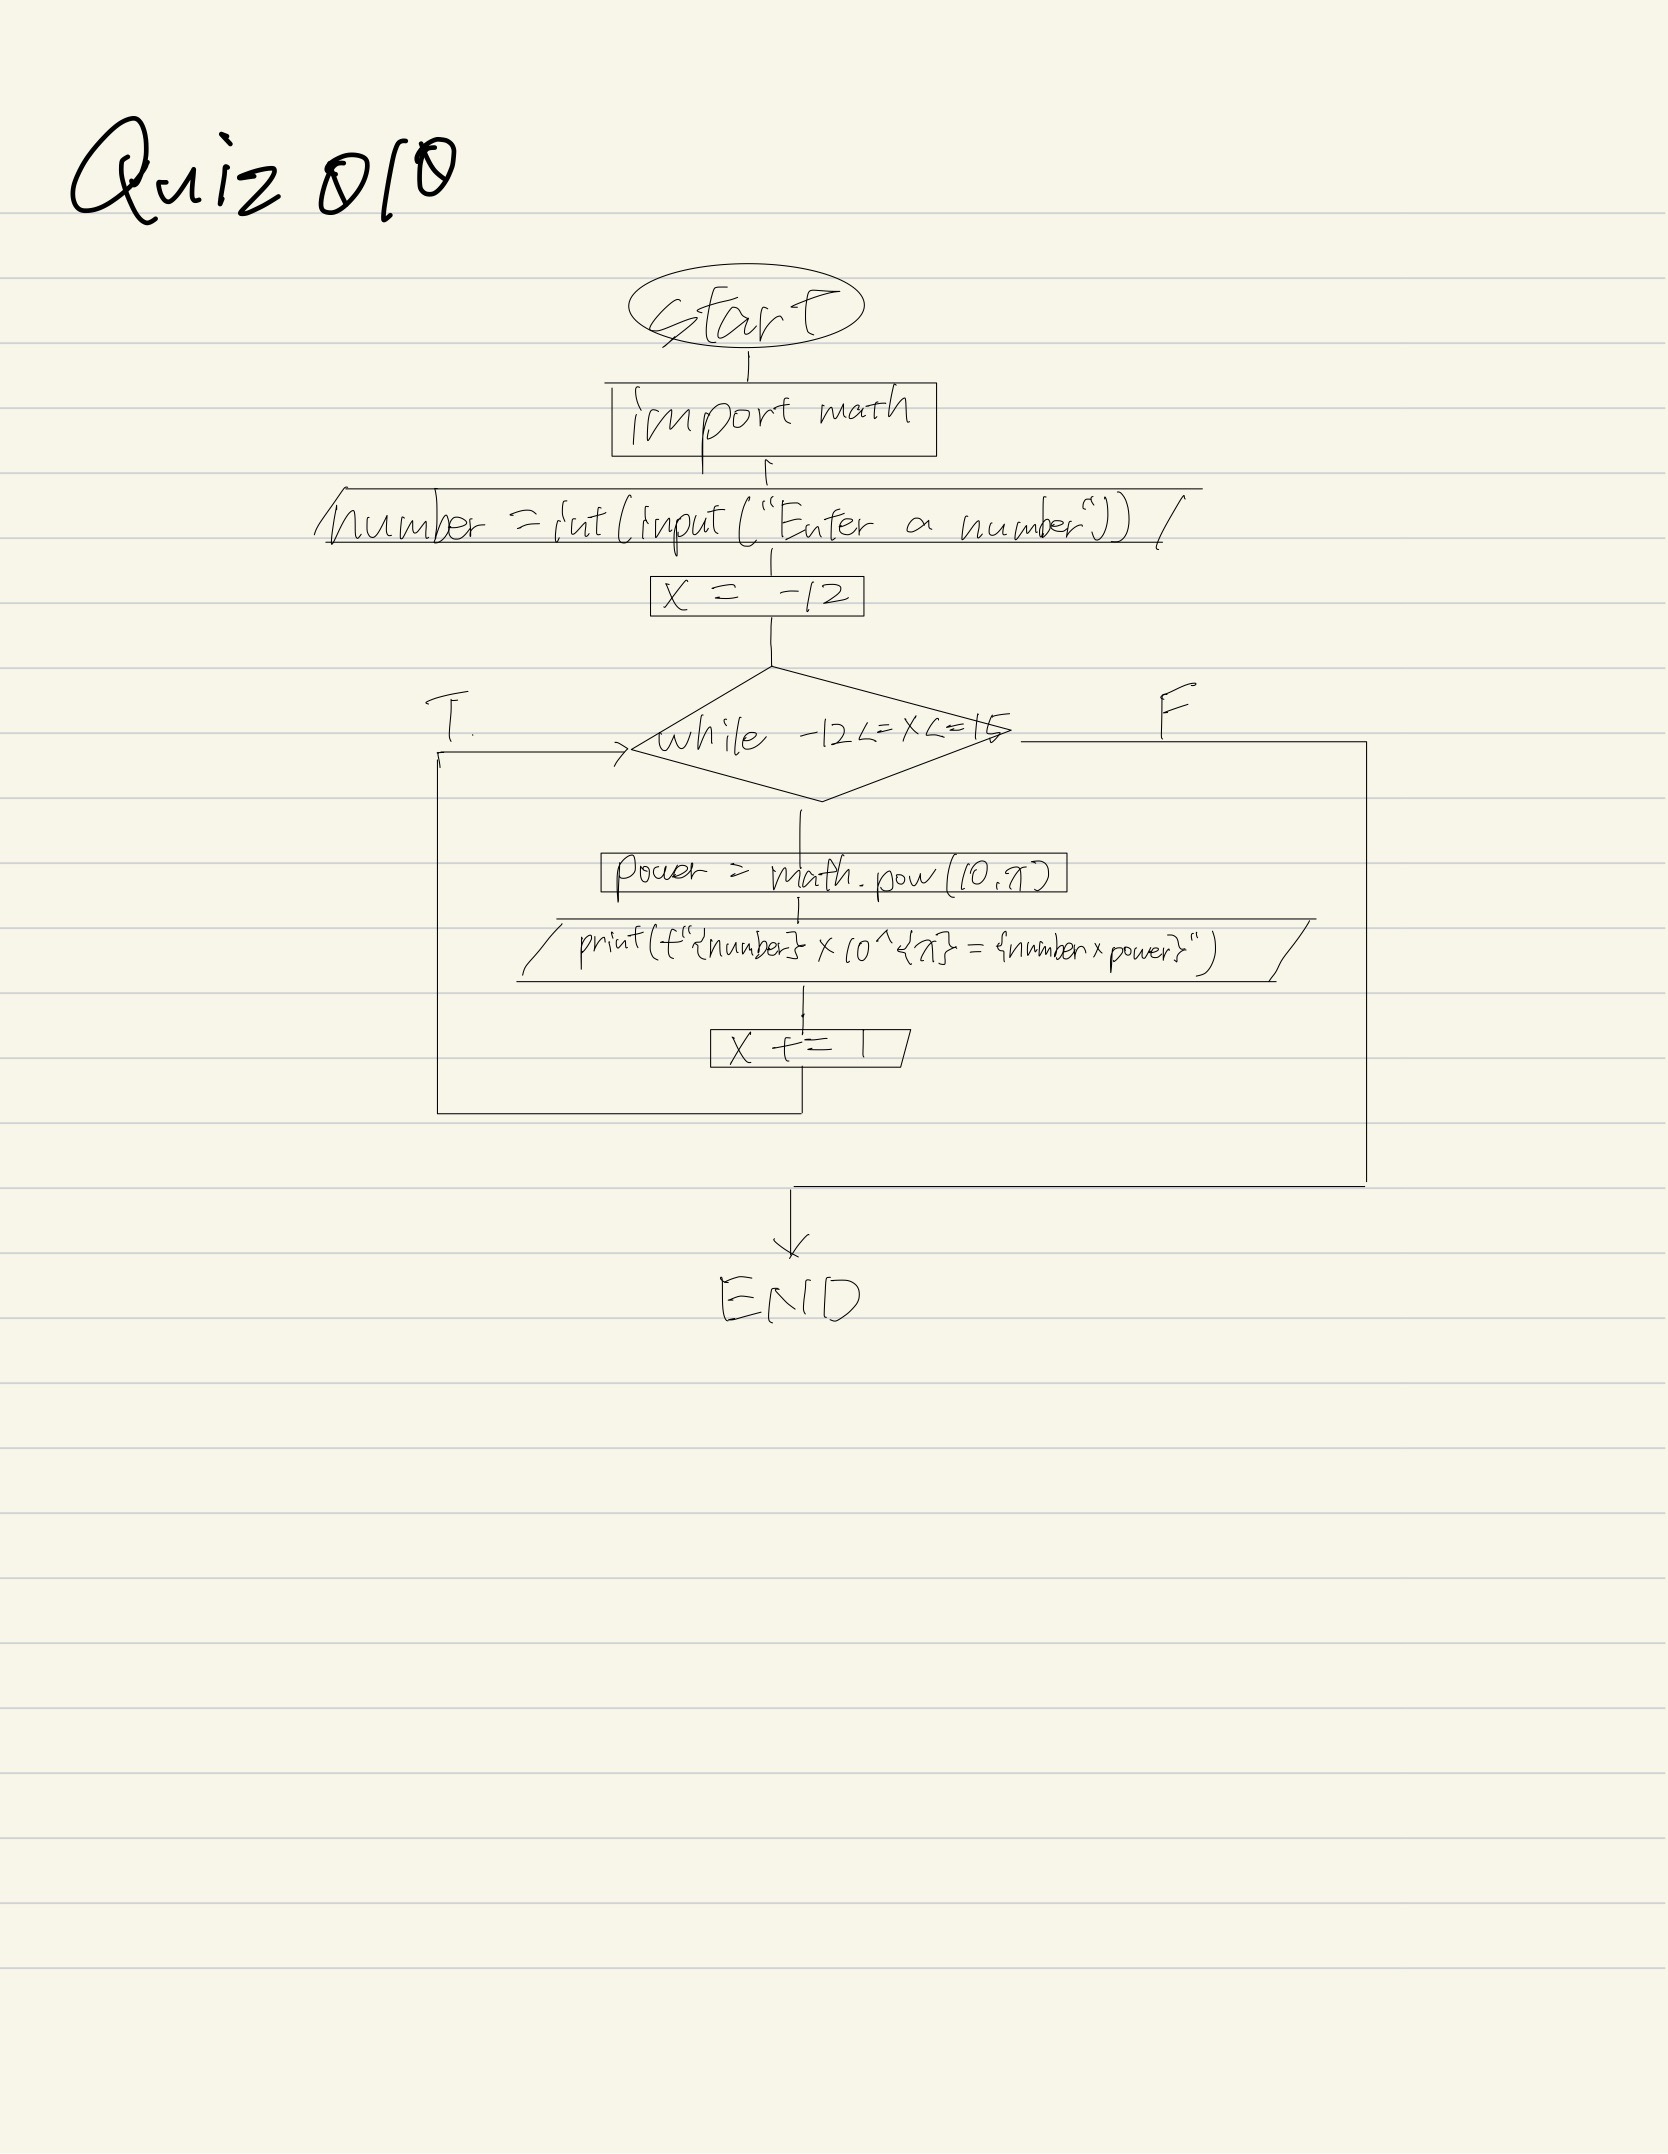 Quiz 010
start
import math
number = int(input("Enter a number"))
x = -12
T. F
while -12<=x<=15
power = math.pow(10,x)
print(f"{number} x 10^{x} = {number x power}")
x += 1
END